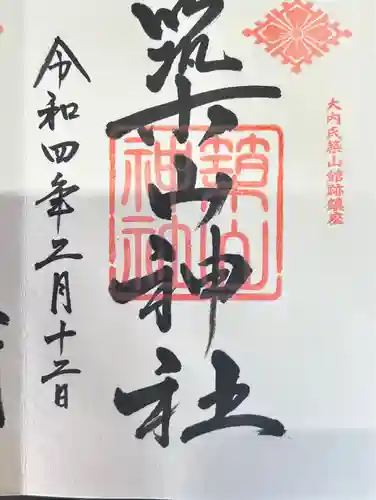 大内氏築山館跡鎮座
築山神社
築山神社
令和四年二月十二日